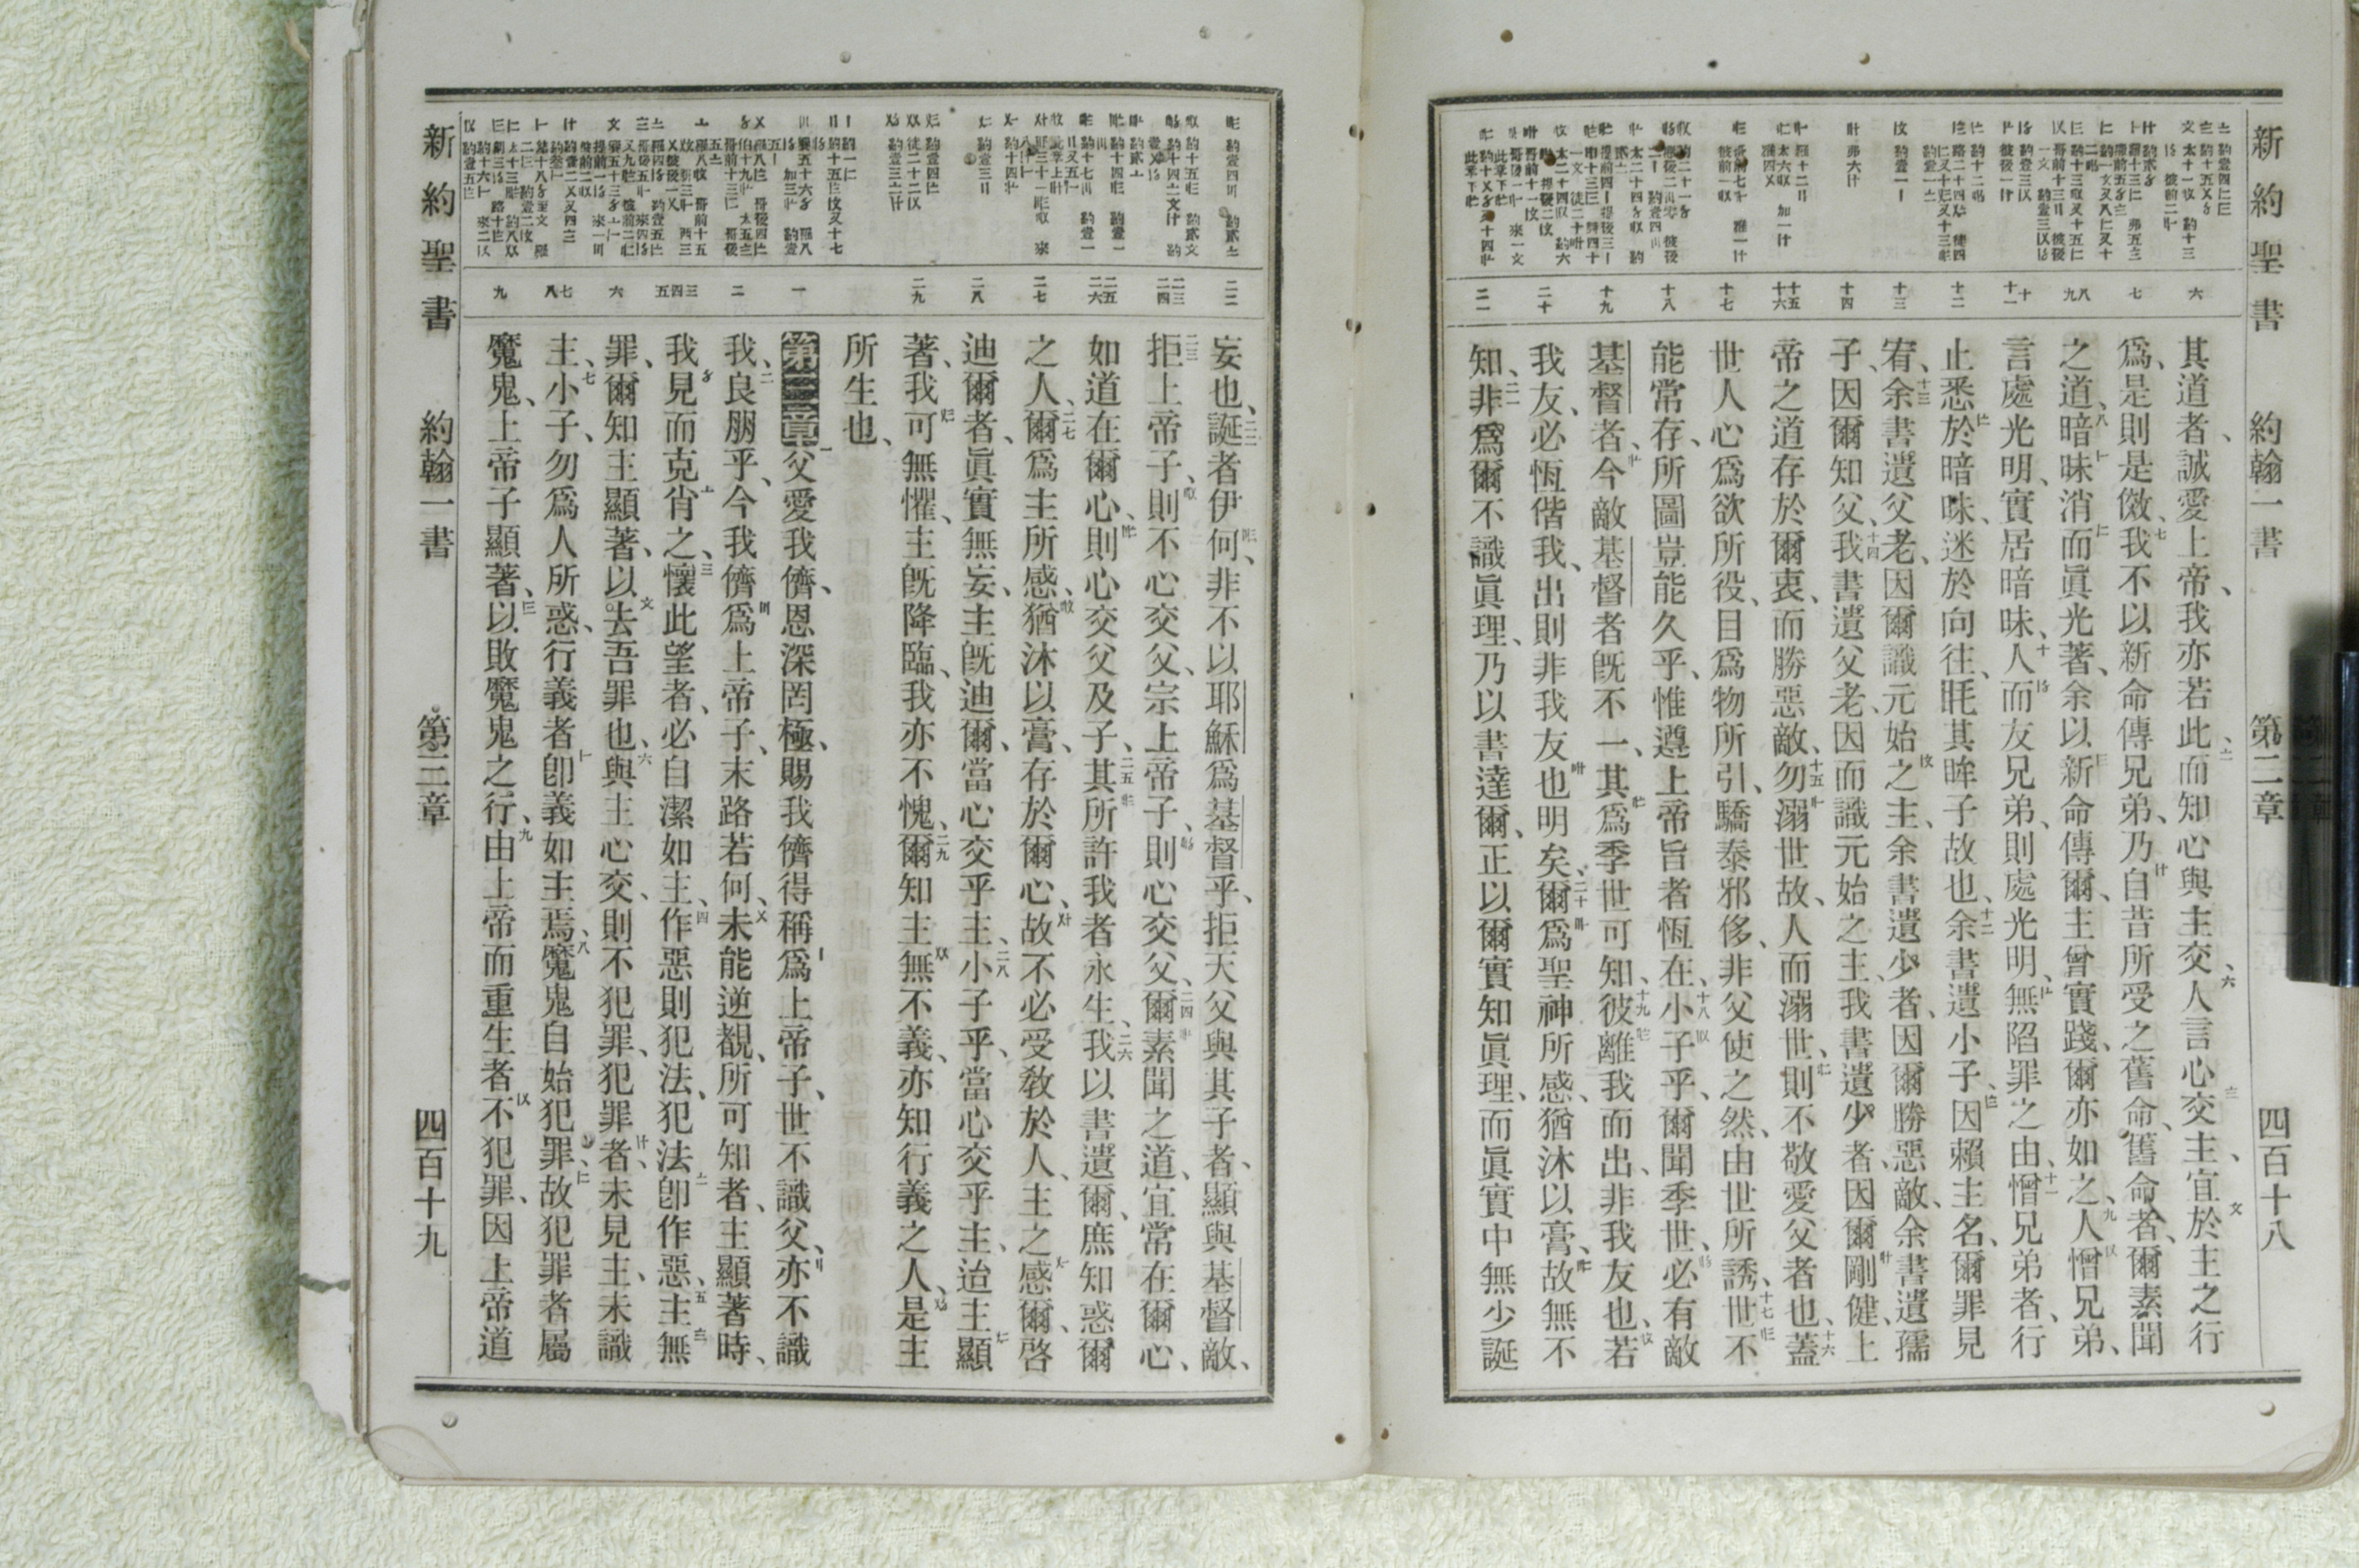 新約聖書 約翰一書 第二章 四百十八
六
七
八九
十十一
十二
十三
十四
十五十六
十七
十八
十九
二十
二一
其道者、誠愛上帝、我亦若此、而知心與主交、六人言心交主、宜於主之行
爲、是則是傚、七我不以新命傳兄弟、乃自昔所受之舊命、舊命者、爾素聞
之道、八暗昧消而眞光著、余以新命傳爾、主曾實踐、爾亦如之、九人憎兄弟、
言處光明、實居暗昧、十人而友兄弟、則處光明、無陷罪之由、十一憎兄弟者、行
止悉於暗昧、迷於向往、眊其眸子故也、十二余書遺小子、因賴主名、爾罪見
宥、十三余書遺父老、因爾識元始之主、余書遺少者、因爾勝惡敵、余書遺孺
子、因爾知父、十四我書遺父老、因而識元始之主、我書遺少者、因爾剛健、上
帝之道存於爾衷、而勝惡敵、十五勿溺世故、人而溺世、則不敬愛父者也、十六蓋
世人心爲欲所役、目爲物所引、驕泰邪侈、非父使之然、由世所誘、十七世不
能常存、所圖豈能久乎、惟遵上帝旨者恆在、十八小子乎、爾聞季世、必有敵
基督者、今敵基督者旣不一、其爲季世可知、十九彼離我而出、非我友也、若
我友、必恆偕我、出則非我友也明矣、二十爾爲聖神所感、猶沐以膏、故無不
知、二一非爲爾不識眞理、乃以書達爾、正以爾實知眞理、而眞實中無少誕
二二
二三二四
二五二六
二七
二八
二九
一
二
三四五
六
七八
九
妄也、二二誕者伊何、非不以耶穌爲基督乎、拒天父與其子者、顯與基督敵、
二三拒上帝子、則不心交父、宗上帝子、則心交父、二四爾素聞之道、宜常在爾心、
如道在爾心、則心交父及子、二五其所許我者永生、二六我以書遺爾、庶知惑爾
之人、二七爾爲主所感、猶沐以膏、存於爾心、故不必受教於人、主之感爾、啓
迪爾者、眞實無妄、主旣迪爾、當心交乎主、二八小子乎、當心交乎主、迨主顯
著、我可無懼、主旣降臨、我亦不愧、二九爾知主無不義、亦知行義之人、是主
所生也、
第三章 一父愛我儕、恩深罔極、賜我儕得稱爲上帝子、世不識父、亦不識
我、二良朋乎、今我儕爲上帝子、末路若何、未能逆覩、所可知者、主顯著時、
我見而克肖之、三懷此望者、必自潔如主、四作惡則犯法、犯法卽作惡、五主無
罪、爾知主顯著、以去吾罪也、六與主心交、則不犯罪、犯罪者、未見主、未識
主、七小子、勿爲人所惑、行義者卽義如主焉、八魔鬼自始犯罪、故犯罪者屬
魔鬼、上帝子顯著、以敗魔鬼之行、九由上帝而重生者不犯罪、因上帝道
新約聖書 約翰一書 第三章 四百十九